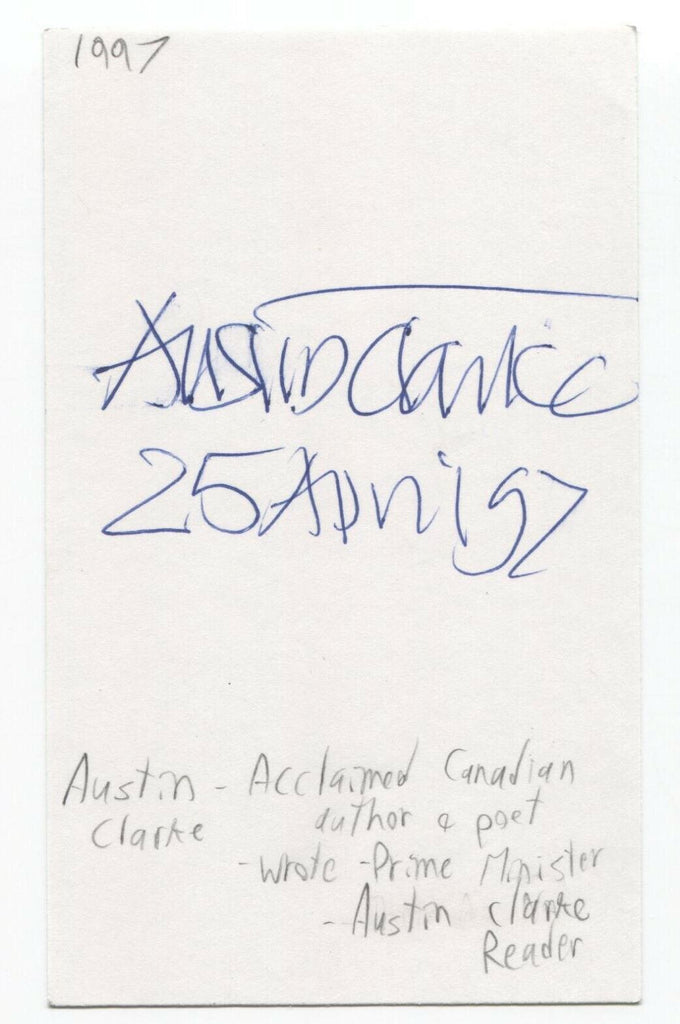 1997
Austin Clarke
25 April 97
Austin - Acclaimed Canadian
Clarke author & poet
- wrote - Prime Minister
- Austin Clarke
Reader